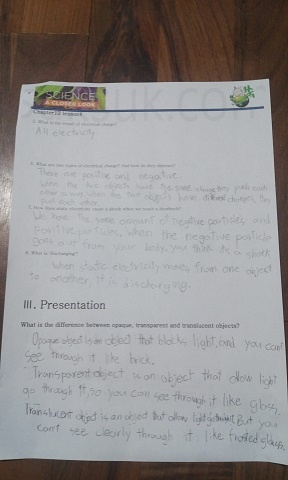 SCIENCE
A CLOSER LOOK
Chapter12 lesson4
5. What is the result of electrical charge?
All electricity
6. What are two types of electrical charge? And how do they interact?
There are positive and negative.
When the two objects have the same charge they push each
other a way when the two objects have different charges, they
pull each other.
7. How does static electricity make a shock when we touch
We have the same amount of negative particles and
Positive particles, when the negative particle
goes out from your body, you think its a shock
8. What is discharging?
When static electricity moves from one object
to another, it is discharging.
III. Presentation
What is the difference between opaque, transparent and translucent objects?
Opaque object is an object that blocks light, and you cant
see through it like brick.
Transparent object is an object that allow light
go through it, so you can see through it like glass.
Translucent object is an object that allow light go through But you
cant see clearly through it like frosted glass.